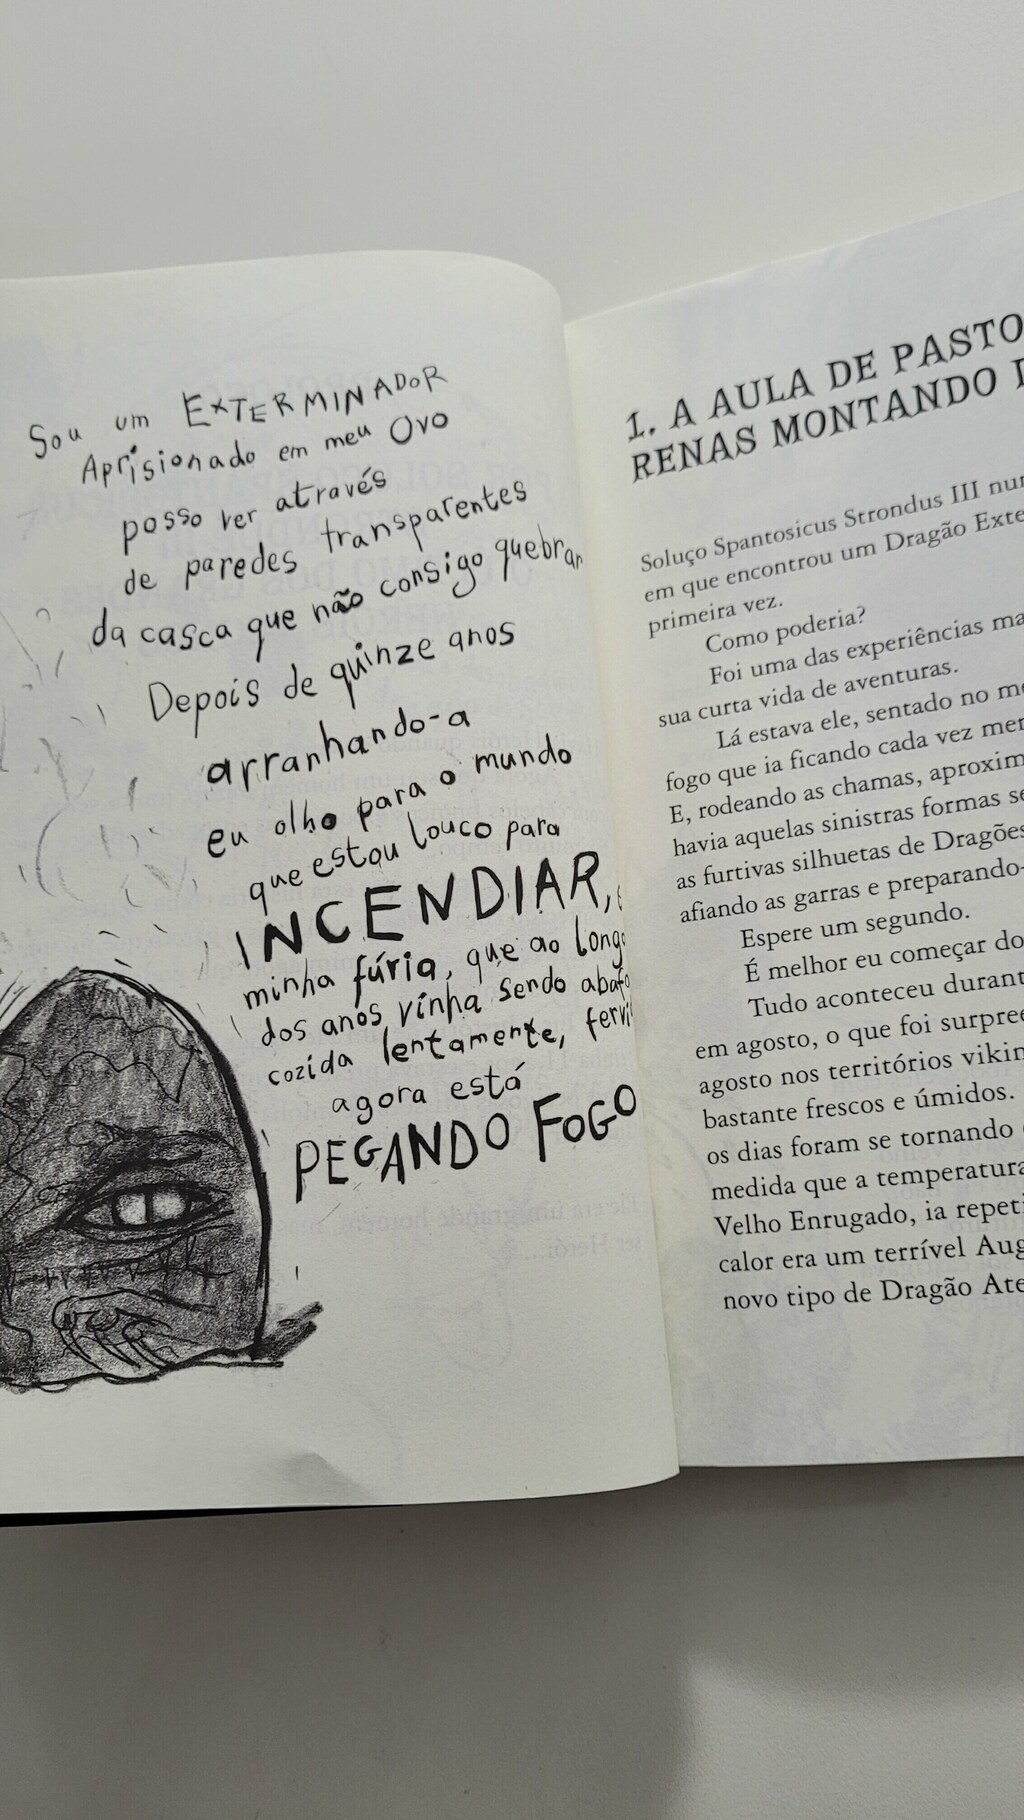 Sou um EXTERMINADOR
Aprisionado em meu Ovo
posso ver através
de paredes transparentes
da casca que não consigo quebrar
Depois de quinze anos
arranhando-a
eu olho para o mundo
que estou louco para
INCENDIAR,
minha fúria, que ao longo
dos anos vinha sendo
cozida lentamente,
agora está
PEGANDO FOGO
1. A AULA DE
RENAS MONTANDO
Soluço Spantosicus Strondus III
em que encontrou um Dragão
primeira vez.
Como poderia?
Foi uma das experiências
sua curta vida de aventuras.
Lá estava ele, sentado no
fogo que ia ficando cada vez
E, rodeando as chamas,
havia aquelas sinistras formas
as furtivas silhuetas de Dragões
afiando as garras e
Espere um segundo.
É melhor eu começar do
Tudo aconteceu
em agosto, o que foi
agosto nos territórios
bastante frescos e úmidos.
os dias foram se tornando
medida que a temperatura
Velho Enrugado, ia
calor era um terrível
novo tipo de Dragão